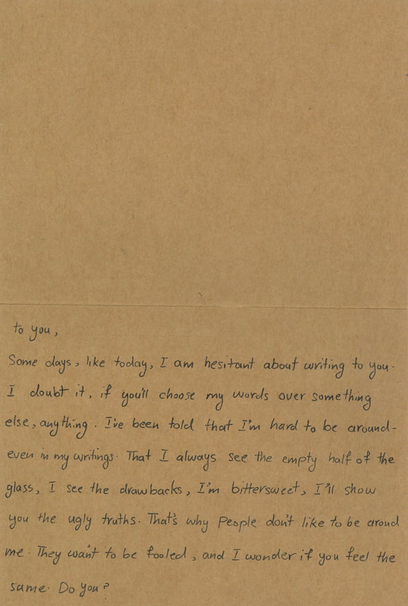 to you,
Some days, like today, I am hesitant about writing to you.
I doubt it, if you'll choose my words over something
else, anything. I've been told that I'm hard to be around-
even in my writings. That I always see the empty half of the
glass, I see the drawbacks, I'm bittersweet, I'll show
you the ugly truths. That's why people don't like to be around
me. They want to be fooled, and I wonder if you feel the
same. Do you?